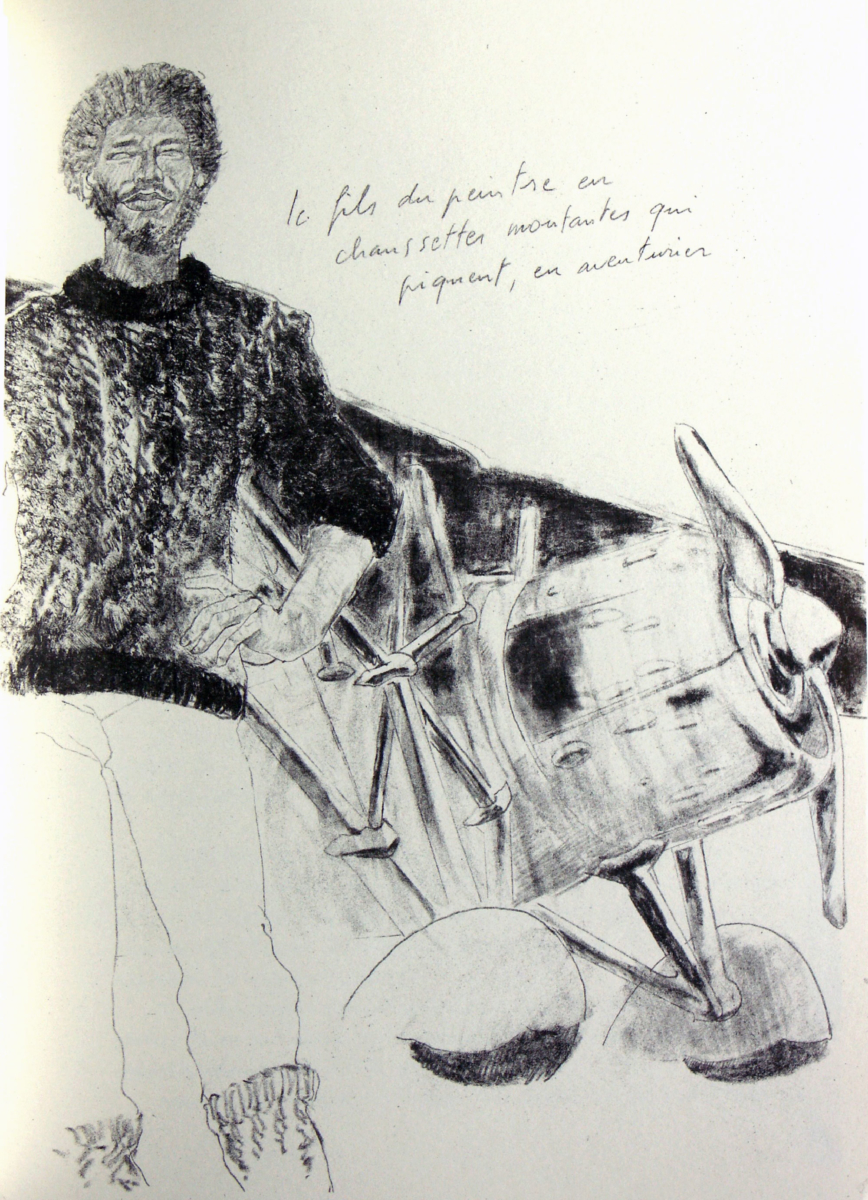 le fils du peintre en
chaussettes montantes qui
piquent, en aventurier